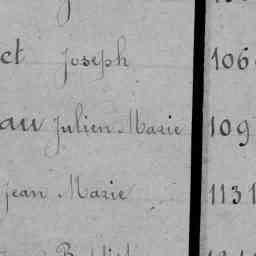 ct Joseph 106
au Julien Marie 109
Jean Marie 1131